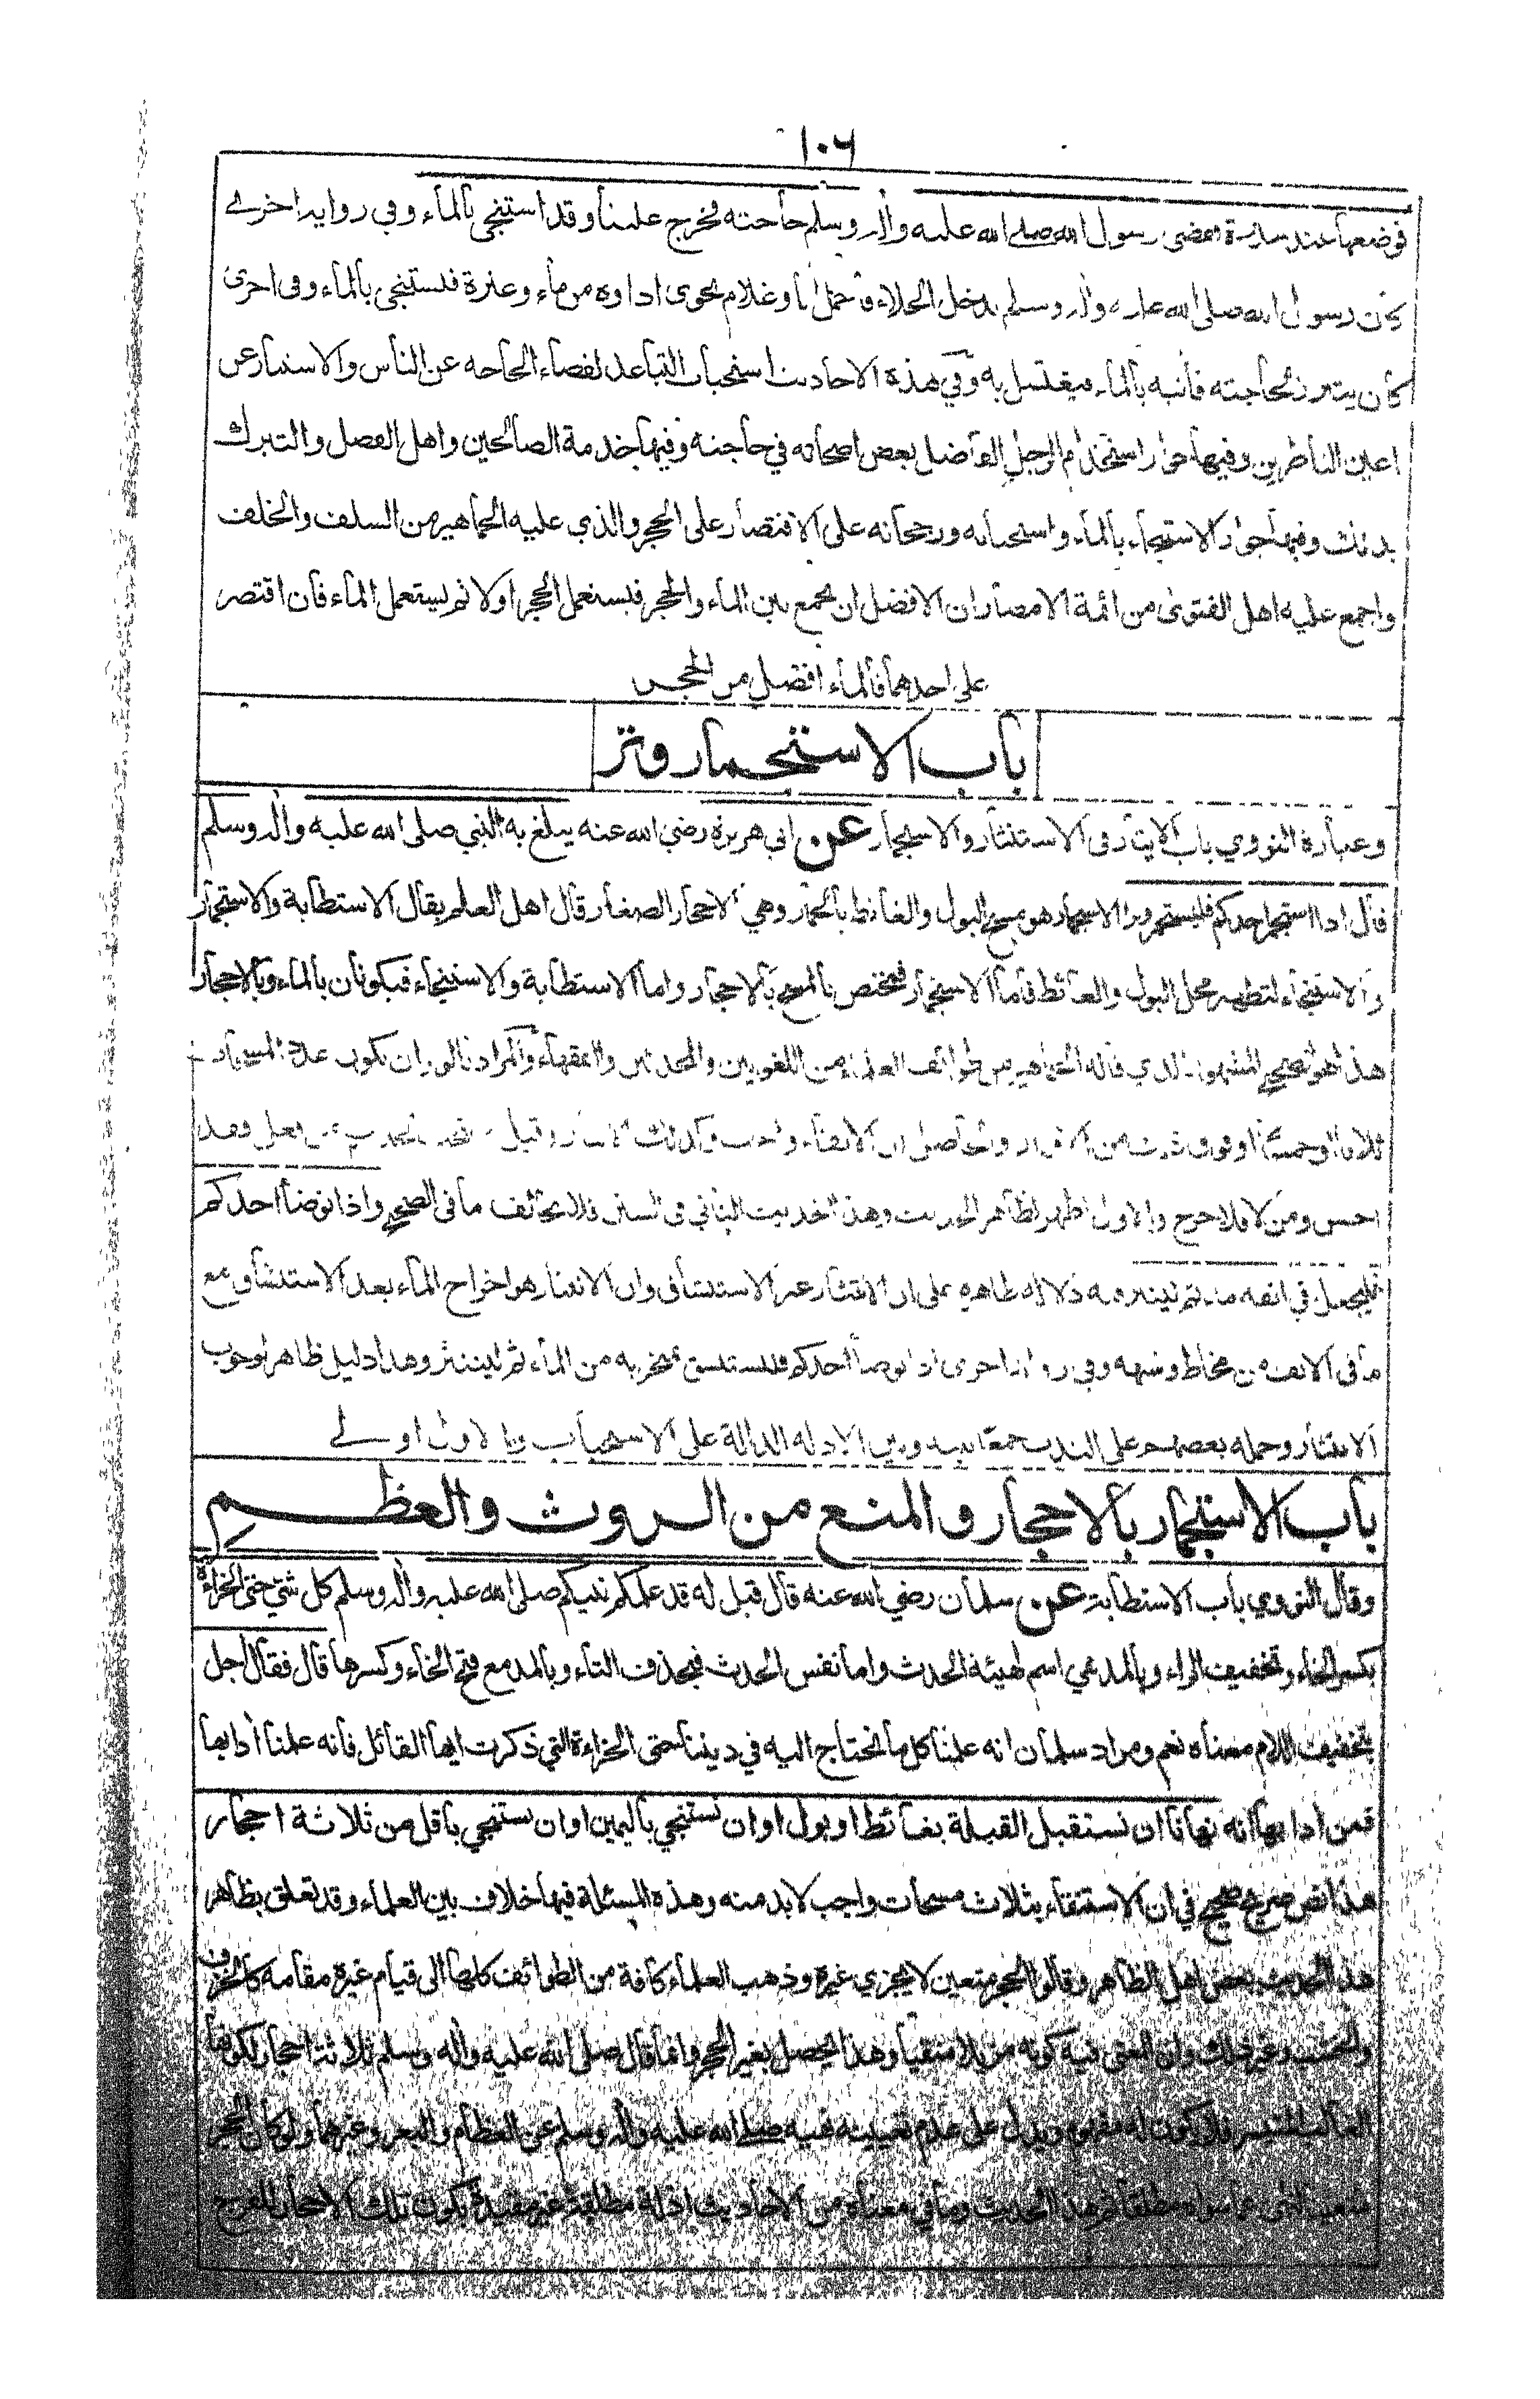 ١٠٦
فوضعها عند سدرة فقضى رسول الله صلى الله عليه وآله وسلم حاجته فخرج علينا وقد استنجى بالماء وفي رواية اخرى
كان رسول الله صلى الله عليه وآله وسلم يدخل الخلاء فاحمل انا وغلام نحوى اداوة من ماء وعنزة فيستنجي بالماء وفى اخرى
كان يتبرز لحاجته فأتيه بالماء فيغتسل به وفي هذه الاحاديث استحباب التباعد لقضاء الحاجة عن الناس والاستتار عن
اعين الناظرين وفيها جواز استخدام الرجل الفاضل بعض اصحابه في حاجته وفيها خدمة الصالحين واهل الفضل والتبرك
بذلك وفيها جواز الاستنجاء بالماء واستحبابه ورجحانه على الاقتصار على الحجر والذي عليه الجماهير من السلف والخلف
واجمع عليه اهل الفتوى من ائمة الامصار ان الافضل ان يجمع بين الماء والحجر فيستعمل الحجر اولا ثم يستعمل الماء فان اقتصر
على احدهما فالماء افضل من الحجر
باب الاستجمار وتر
وعبارة النووي باب الايتار فى الاستنثار والاستجمار عن ابي هريرة رضي الله عنه يبلغ به النبي صلى الله عليه وآله وسلم
قال اذا استجمر احدكم فليستجمر وترا الاستجمار هو مسح البول والغائط بالجمار وهي الاحجار الصغار قال اهل العلم يقال الاستطابة والاستجمار
والاستنجاء لتطهير محل البول والغائط فاما الاستجمار فمختص بالمسح بالاحجار واما الاستطابة والاستنجاء فيكونان بالماء وبالاحجار
هذا هو الصحيح المشهور الذي قاله الجماهير من طوائف العلماء من اللغويين والمحدثين والفقهاء والمراد بالوتر ان يكون عدد المسحات
ثلاثا او خمسا او فوق ذلك من الاوتار والحاصل ان الانقاء واجب وكذلك الايتار وقيل من فعل فقد
احسن ومن لا فلا حرج والاول اظهر لظاهر الحديث وهذا الحديث الثاني في السنن فلا يخالف ما فى الصحيح واذا توضأ احدكم
فليجعل في انفه ماء ثم لينتثر فيه دلالة ظاهرة على ان الانتثار غير الاستنشاق وان الانتثار هو اخراج الماء بعد الاستنشاق مع
ما فى الانف من مخاط وشبهه وفي رواية اخرى اذا توضأ احدكم فليستنشق بمنخريه من الماء ثم لينتثر وهذا دليل ظاهر لوجوب
الانتثار وحمله بعضهم على الندب جمعا بينه وبين الادلة الدالة على الاستحباب والاول اولى
باب الاستنجمار بالاحجار والمنع من الروث والعظم
وقال النووي باب الاستطابة عن سلمان رضي الله عنه قال قيل له قد علمكم نبيكم صلى الله عليه وآله وسلم كل شئ حتى الخراءة
بكسر الخاء وتخفيف الراء وبالمد هي اسم لهيئة الحدث واما نفس الحدث فبحذف التاء وبالمد مع فتح الخاء وكسرها قال فقال اجل
بتخفيف اللام معناه نعم ومراد سلمان انه علمنا كل ما نحتاج اليه في ديننا حتى الخراءة التي ذكرت ايها القائل فانه علمنا آدابها
فمن آدابها انه نهانا ان نستقبل القبلة بغائط او بول او ان نستنجي باليمين او ان نستنجي باقل من ثلاثة احجار
هذا نص صريح صحيح في ان الاستنقاء بثلاث مسحات واجب لا بد منه وهذه المسئلة فيها خلاف بين العلماء وقد تعلق بظاهر
هذا الحديث بعض اهل الظاهر وقالوا الحجر متعين لا يجزي غيره وذهب العلماء كافة من الطوائف كلها الى قيام غيره مقامه كالخرق
والخشب وغير ذلك وان المعنى فيه كونه مزيلا منقيا وهذا يحصل بغير الحجر وانما قال صلى الله عليه وآله وسلم ثلاثة احجار لكونها
الغالب المتيسر فلا يكون له مفهوم ويدل على عدم تعيينه نهيه صلى الله عليه وآله وسلم عن العظام والبعر وغيرهما ولو كان الحجر
متعينا لنهى عما سواه مطلقا هذا الحديث وما في معناه من الاحاديث ادلة مطلقة غير مقيدة بكون تلك الاحجار للفرج